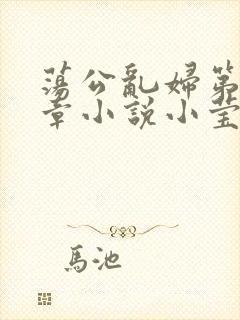 蕩公亂婦第
章小說小莹
馬池